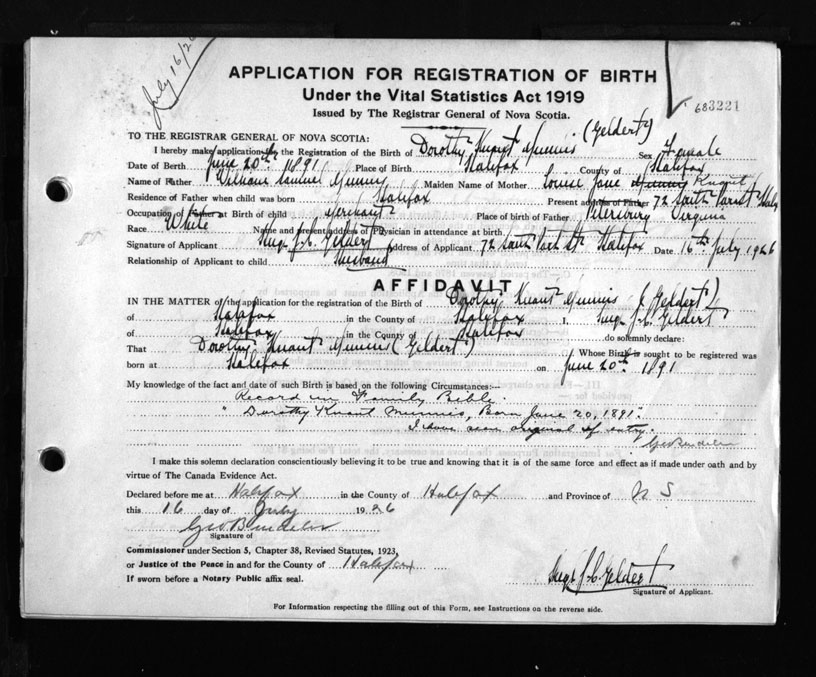 July 16/26
APPLICATION FOR REGISTRATION OF BIRTH
Under the Vital Statistics Act 1919
683221
Issued by The Registrar General of Nova Scotia.
TO THE REGISTRAR GENERAL OF NOVA SCOTIA: (Geldert)
I hereby make application the Registration of the Birth of Dorothy Sex Female
Date of Birth June 20th 1891 Place of Birth Halifax County of Halifax
Name of Father William Samuel Maiden Name of Mother Louise Jane
Residence of Father when child was born Halifax Present address of Father 72 South Park St
Occupation of Father at Birth of child Merchant Place of birth of Father Virginia
Race White Name and present address of Physician in attendance at birth
Signature of Applicant J. C. Geldert Address of Applicant 72 South Park St Halifax Date 16th July 1926
Relationship of Applicant to child Husband
AFFIDAVIT
IN THE MATTER of the application for the registration of the Birth of Dorothy (Geldert)
of Halifax in the County of Halifax I, J. C. Geldert
of Halifax in the County of Halifax do solemnly declare:
That Dorothy (Geldert) Whose Birth is sought to be registered was
born at Halifax on June 20th 1891
My knowledge of the fact and date of such Birth is based on the following Circumstances:—
Record in Family Bible.
" Dorothy Born June 20, 1891"
I have seen original of entry.
I make this solemn declaration conscientiously believing it to be true and knowing that it is of the same force and effect as if made under oath and by
virtue of The Canada Evidence Act.
Declared before me at Halifax in the County of Halifax and Province of N S
this 16 day of July 1926
Signature of
Commissioner under Section 5, Chapter 38, Revised Statutes, 1923,
or Justice of the Peace in and for the County of Halifax
If sworn before a Notary Public affix seal.
J. C. Geldert
Signature of Applicant.
For Information respecting the filling out of this Form, see Instructions on the reverse side.